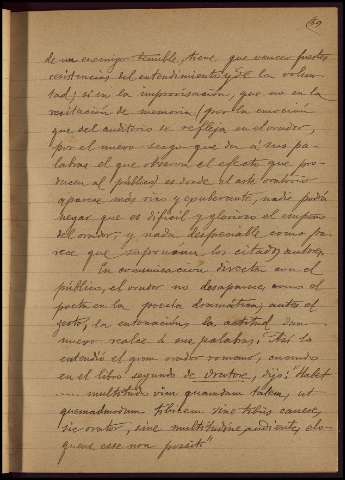 49
de un enemigo temible, tiene que vencer fuertes
resistencias del entendimiento y de la volun-
tad; si en la improvisación, que no en la
recitación de memoria, por la emoción
que del auditorio se refleja en el orador,
por el nuevo sesgo que da á sus pa-
labras el que observa el efecto que pro-
ducen al público, es donde el arte oratorio
aparece más vivo y exuberante, nadie podrá
negar que es difícil y glorioso el empeño
del orador; y nada despreciable como pa-
rece que suponen los citados autores.
En comunicación directa con el
público, el orador no desaparece, como el
poeta en la poesía dramática; antes el
gesto, la entonación, la actitud dan
nuevo realce á sus palabras. Así lo
entendió el gran orador romano, cuando
en el libro segundo de Oratore, dijo: "Habet
multitudo vim quamdam talem, ut
quemadmodum tibicen sine tibiis canere,
sic orator, sine multitudine audiente, elo-
quens esse non possit"